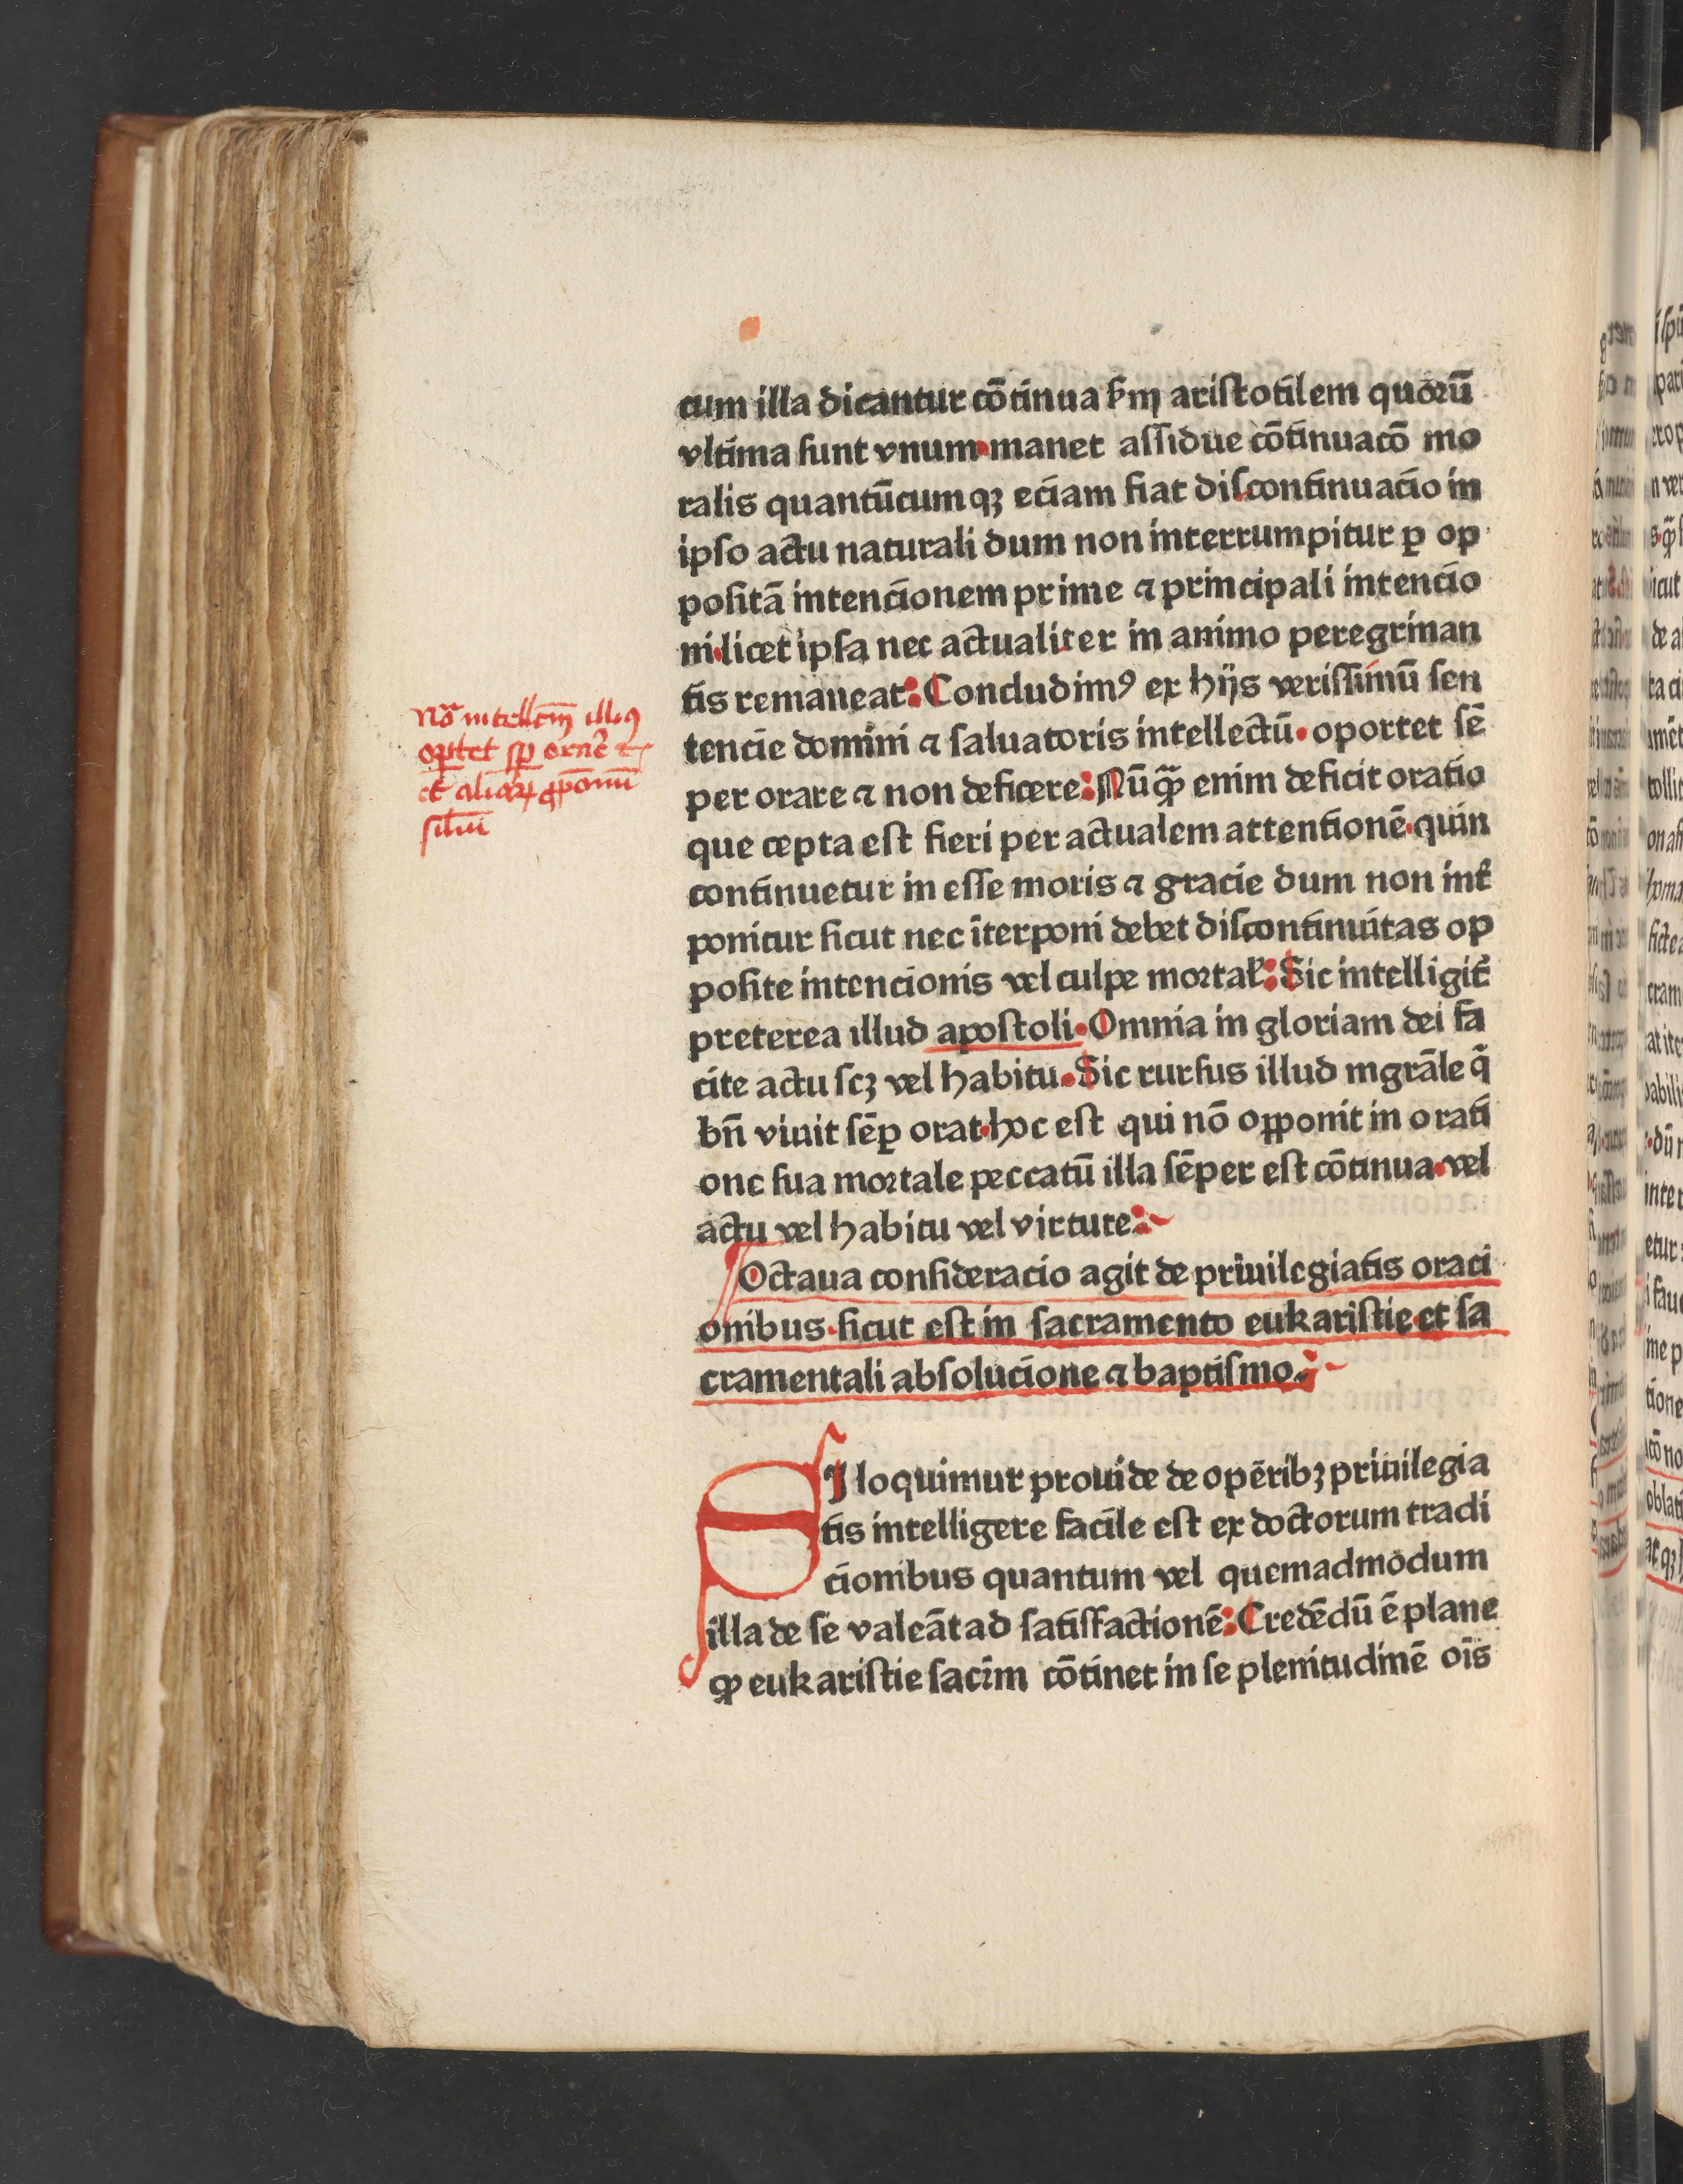 cum illa dicantur cōtinua ẜm aristotilem quorū
vltima sunt vnum·manet assidue cōtinuacō mo
ralis quantūcumqꝫ eciam fiat discontinuacio in
ipso actu naturali dum non interrumpitur ꝑ op
positā intencionem prime ⁊ principali intencio
ni·licet ipsa nec actualiter in animo peregrinan
tis remaneat: Concludimꝯ ex hijs verissimū sen
tencie domini ⁊ saluatoris intellectū· oportet sē
per orare ⁊ non deficere: Nūꝙ̄ enim deficit oratio
que cepta est fieri per actualem attentionē·quin
continuetur in esse moris ⁊ gracie dum non int̄
ponitur sicut nec īterponi debet discontinuitas op
posite intencionis vel culpe mortaƚ: Sic intelligit̄
preterea illud apostoli· Omnia in gloriam dei fa
cite actu scꝫ vel habitu· Sic rursus illud mgrāle q̄
bn̄ viuit sēꝑ orat·hoc est qui nō oꝑponit in orati
one sua mortale peccatū illa sēper est cōtinua·vel
actu vel habitu vel virtute:
Octaua consideracio agit de priuilegiatis oraci
onibus·sicut est in sacramento eukaristie·et sa
cramentali absolucione ⁊ baptismo.
Nō intellcm̄ illiꝯ
oꝑtet sꝑ orare
et aliaꝝ ꝓpōnū
siliū
SI loquimur prouide de opēribꝫ priuilegia
tis intelligere facile est ex doctorum tradi
cionibus quantum vel quemadmodum
illa de se valeāt ad satisfactionē: Credēdū ē plane
ꝙ eukaristie sacr̄m cōtinet in se plenitudinē oīs